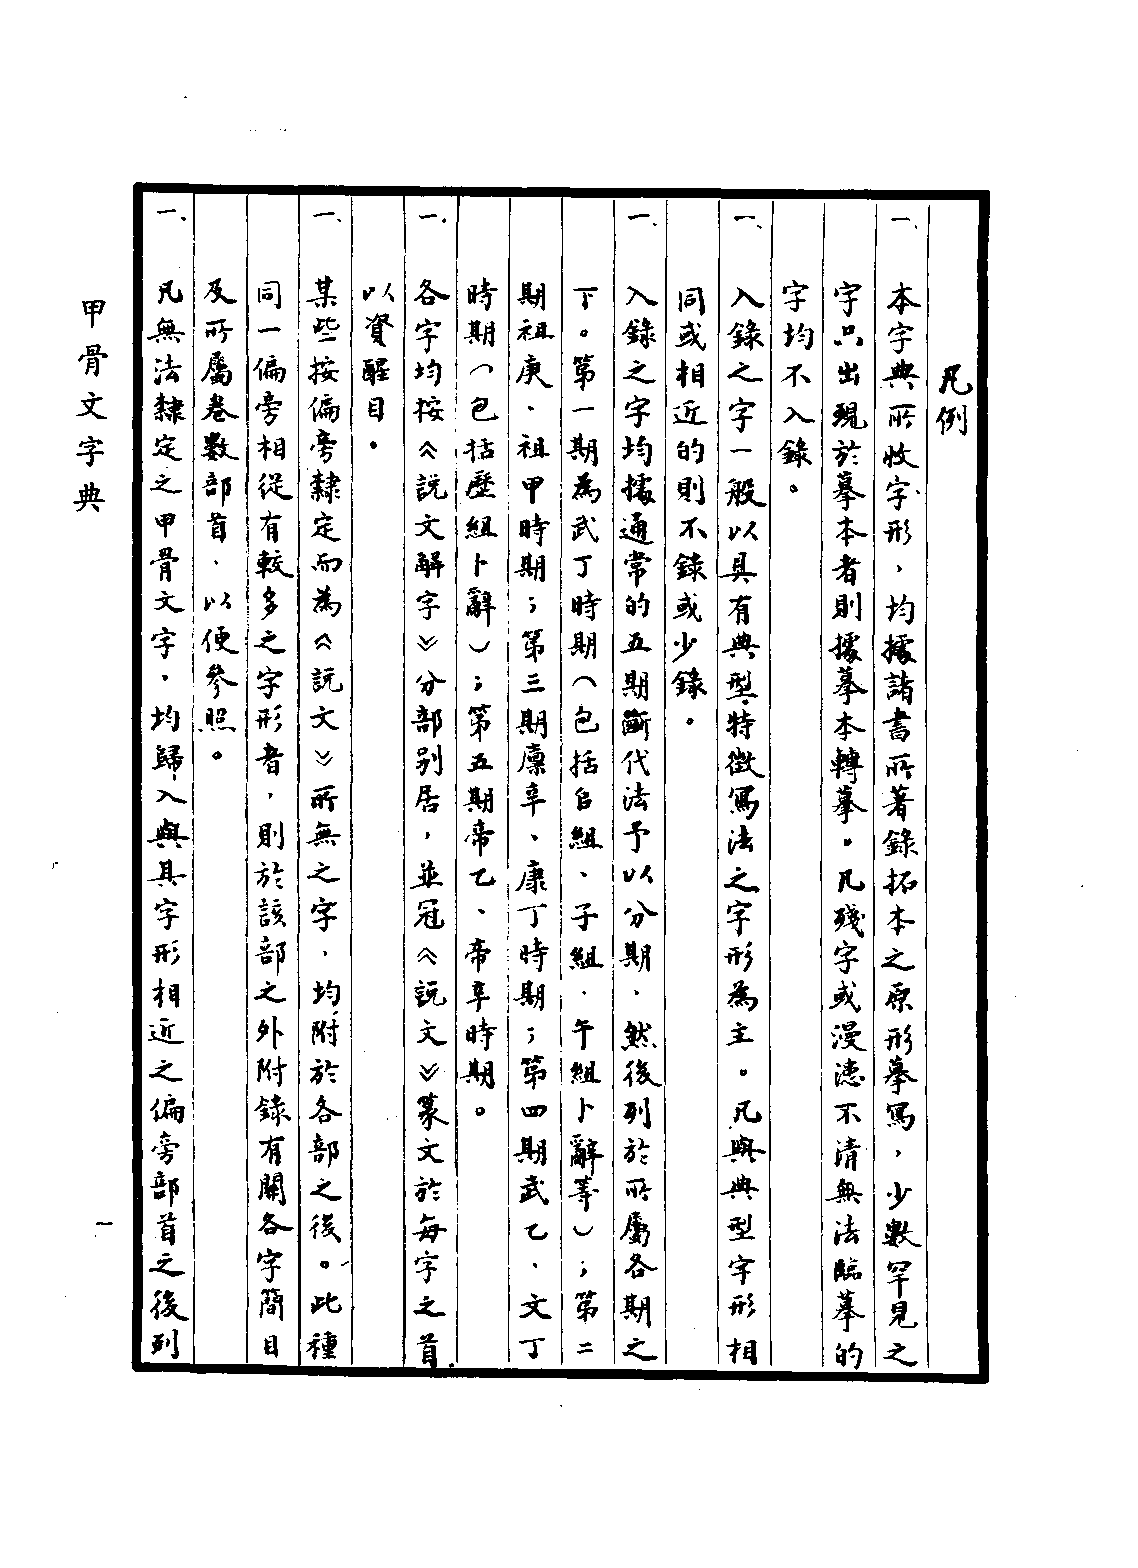 凡例
一、本字典所收字形，均據諸書所著錄拓本之原形摹寫，少數罕見之
字只出現於摹本者則據摹本轉摹。凡殘字或漫漶不清無法臨摹的
字均不入錄。
一、入錄之字一般以具有典型特徵寫法之字形為主。凡與典型字形相
同或相近的則不錄或少錄。
一、入錄之字均據通常的五期斷代法予以分期，然後列於所屬各期之
下。第一期為武丁時期（包括𠂤組、子組、午組卜辭等）；第二
期祖庚、祖甲時期；第三期廩辛、康丁時期；第四期武乙、文丁
時期（包括歷組卜辭）；第五期帝乙、帝辛時期。
一、各字均按《說文解字》分部別居，並冠《說文》篆文於每字之首
以資醒目。
一、某些按偏旁隸定而為《說文》所無之字，均附於各部之後。此種
同一偏旁相從有較多之字形者，則於該部之外附錄有關各字簡目
及所屬卷數部首，以便參照。
一、凡無法隸定之甲骨文字，均歸入與其字形相近之偏旁部首之後列
甲骨文字典
一